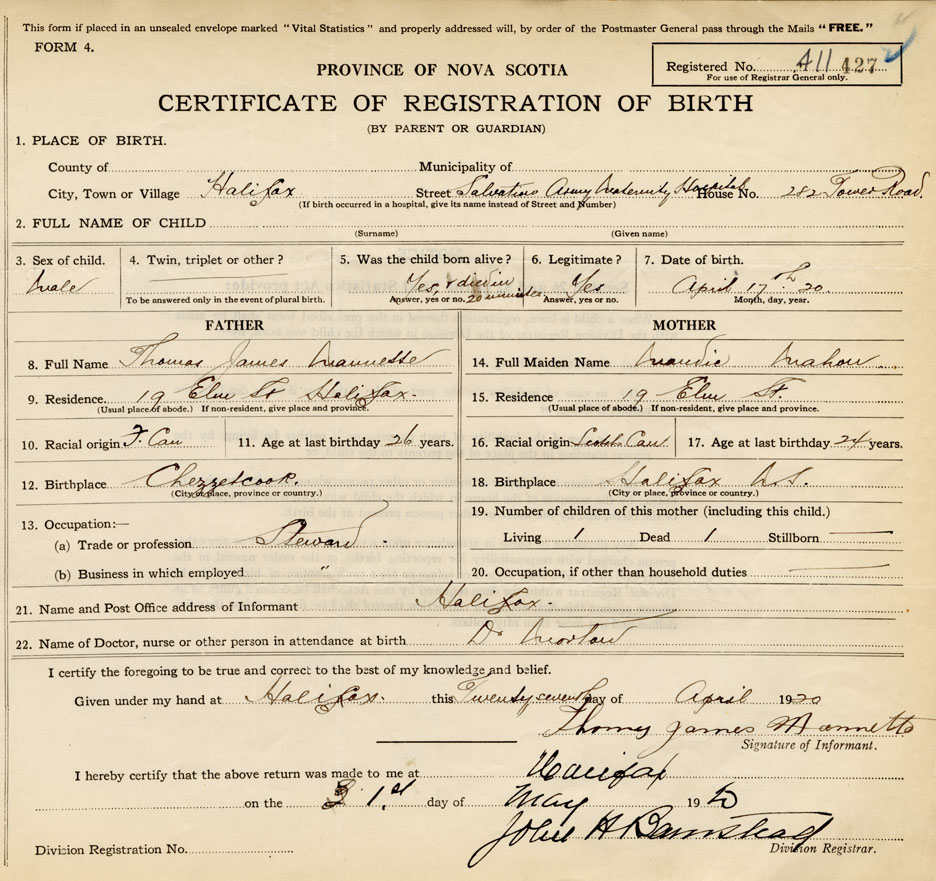 This form if placed in an unsealed envelope marked "Vital Statistics" and properly addressed will, by order of the Postmaster General pass through the Mails "FREE."
FORM 4.
Registered No. 411 427
For use of Registrar General only.
PROVINCE OF NOVA SCOTIA
CERTIFICATE OF REGISTRATION OF BIRTH
(BY PARENT OR GUARDIAN)
1. PLACE OF BIRTH.
County of Municipality of
City, Town or Village Halifax Street Salvation Army Maternity Hospital House No. 282 Tower Road.
(If birth occurred in a hospital, give its name instead of Street and Number)
2. FULL NAME OF CHILD
(Surname) (Given name)
3. Sex of child. 4. Twin, triplet or other? 5. Was the child born alive? 6. Legitimate? 7. Date of birth.
Male Yes, & died in 20 minutes Yes April 17th 20.
To be answered only in the event of plural birth. Answer, yes or no. Answer, yes or no. Month, day, year.
FATHER MOTHER
8. Full Name Thomas James Mannette 14. Full Maiden Name Mahon
9. Residence. 19 Elm St Halifax. 15. Residence 19 Elm St.
(Usual place of abode.) If non-resident, give place and province. (Usual place of abode.) If non-resident, give place and province.
10. Racial origin F. Can 11. Age at last birthday 26 years. 16. Racial origin Scotch Can. 17. Age at last birthday 24 years.
12. Birthplace Chezzetcook. 18. Birthplace Halifax N.S.
(City or place, province or country.) (City or place, province or country.)
13. Occupation:— 19. Number of children of this mother (including this child.)
(a) Trade or profession Steward Living 1 Dead 1 Stillborn —
(b) Business in which employed " 20. Occupation, if other than household duties —
21. Name and Post Office address of Informant Halifax.
22. Name of Doctor, nurse or other person in attendance at birth Dr
I certify the foregoing to be true and correct to the best of my knowledge and belief.
Given under my hand at Halifax. this Twenty seventh day of April 1920
Thomas James Mannette
Signature of Informant.
I hereby certify that the above return was made to me at Halifax
on the 1st day of May 19
John A Barnstead
Division Registration No. Division Registrar.